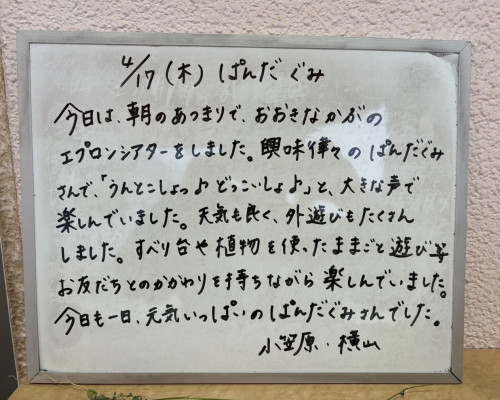 4/17（木）ぱんだぐみ
今日は、朝のあつまりで、おおきなかぶの
エプロンシアターをしました。興味律々のぱんだぐみ
さんで、「うんとこしょっよどっこいしょよ」と、大きな声で
楽しんでいました。天気も良く、外遊びもたくさん
しました。すべり台や植物を使ったままごと遊び等
お友だちとのかかわりを持ちながら楽しんでいました。
今日も一日、元気いっぱいのぱんだぐみさんでした。
小笠原・横山